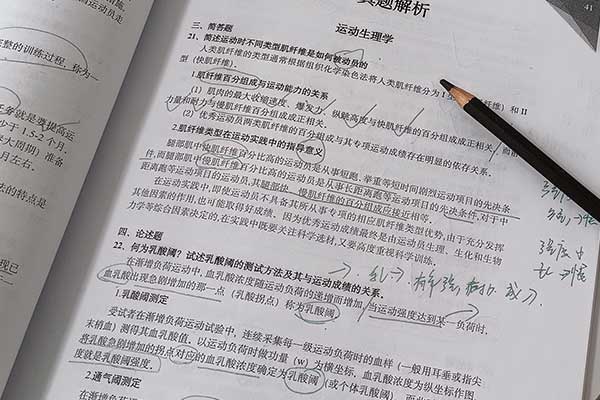 真题解析
41
运动生理学
三、简答题
21、简述运动时不同类型肌纤维是如何被动员的
人类肌纤维的类型通常根据组织化学染色法将人类肌纤维分为 I 型
纤维）和 II
型（快肌纤维）。
1.肌纤维百分组成与运动能力的关系
（1）肌肉的最大收缩速度、爆发力、纵跳高度与快肌纤维的百分组成成正相关，
力量和耐力与慢肌纤维百分组成成正相关。
（2）优秀运动员两类肌纤维百分组成与其专项运动成绩存在明显的依存关系。
2.肌纤维类型在运动实践中的指导意义
腿部肌中快肌纤维百分比高的运动员是从事短跑、举重等短时间剧烈运动项目的先决条
件,而腿部肌中慢肌纤维百分比高的运动员是从事长距离跑等运动项目的先决条件,对于中
距离跑等运动项目的运动员,其腿部快、慢肌纤维的百分组成应接近相等。
在运动实践中,即使运动员不具备其所从事专项的相应肌纤维类型优势,由于充分发挥
其他因素的作用,也可能取得好成绩。因为优秀运动成绩最终是由运动员生理、生化和生物
力学等综合因素决定的,在实践中既要关注科学选材,又要高度重视科学训练。
四、论述题
22、何为乳酸阈？试述乳酸阈的测试方法及其与运动成绩的关系。
在渐增负荷运动中,血乳酸浓度随运动负荷的递增而增加,当运动强度达到某一负荷时,
血乳酸出现急剧增加的那一点（乳酸拐点）称为乳酸阈
1.乳酸阈测定
受试者在渐增负荷运动试验中，连续采集每一级运动负荷时的血样（一般用耳垂或指尖
末梢血）测得其血乳酸值。以运动负荷时做功量（w）为横坐标，血乳酸浓度为纵坐标作图
将乳酸急剧增加的拐点对应的血乳酸浓度确定为乳酸阈
度就是乳酸阈强度。
2.通气阈测定
（或个体乳酸阈）
在渐增负荷
完整的训练过程，称为一
任务就是要提高运
少于 1.5-2 个月。
大周期）准备
月左右。
法的特点是
现已